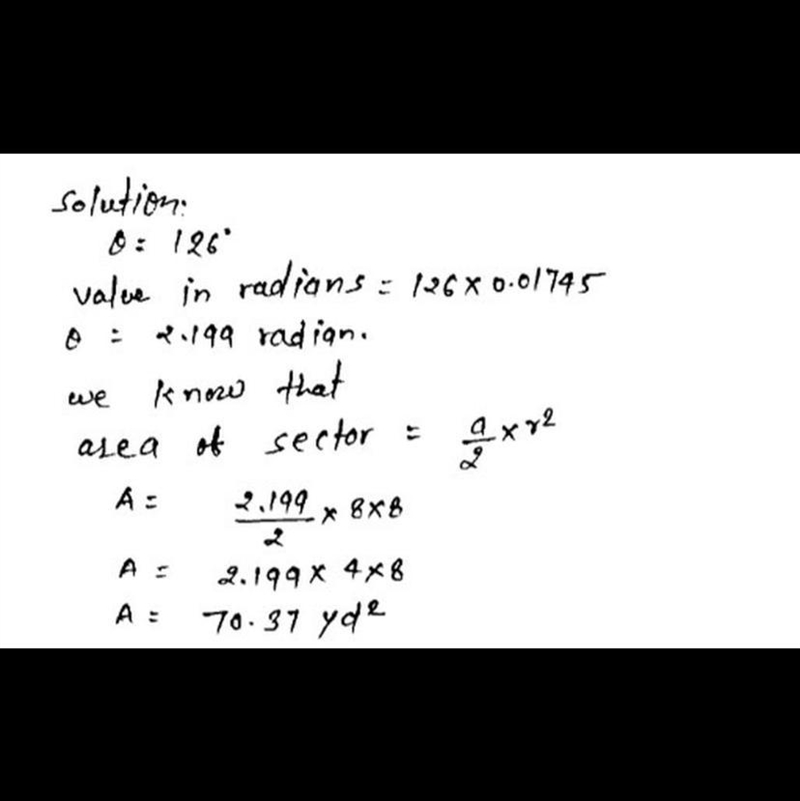 Solution:
θ = 126°
value in radians = 126 × 0.01745
θ = 2.199 radian.
we know that
area of sector = a/2 × r²
A = 2.199/2 × 8×8
A = 2.199 × 4×8
A = 70.37 yd²